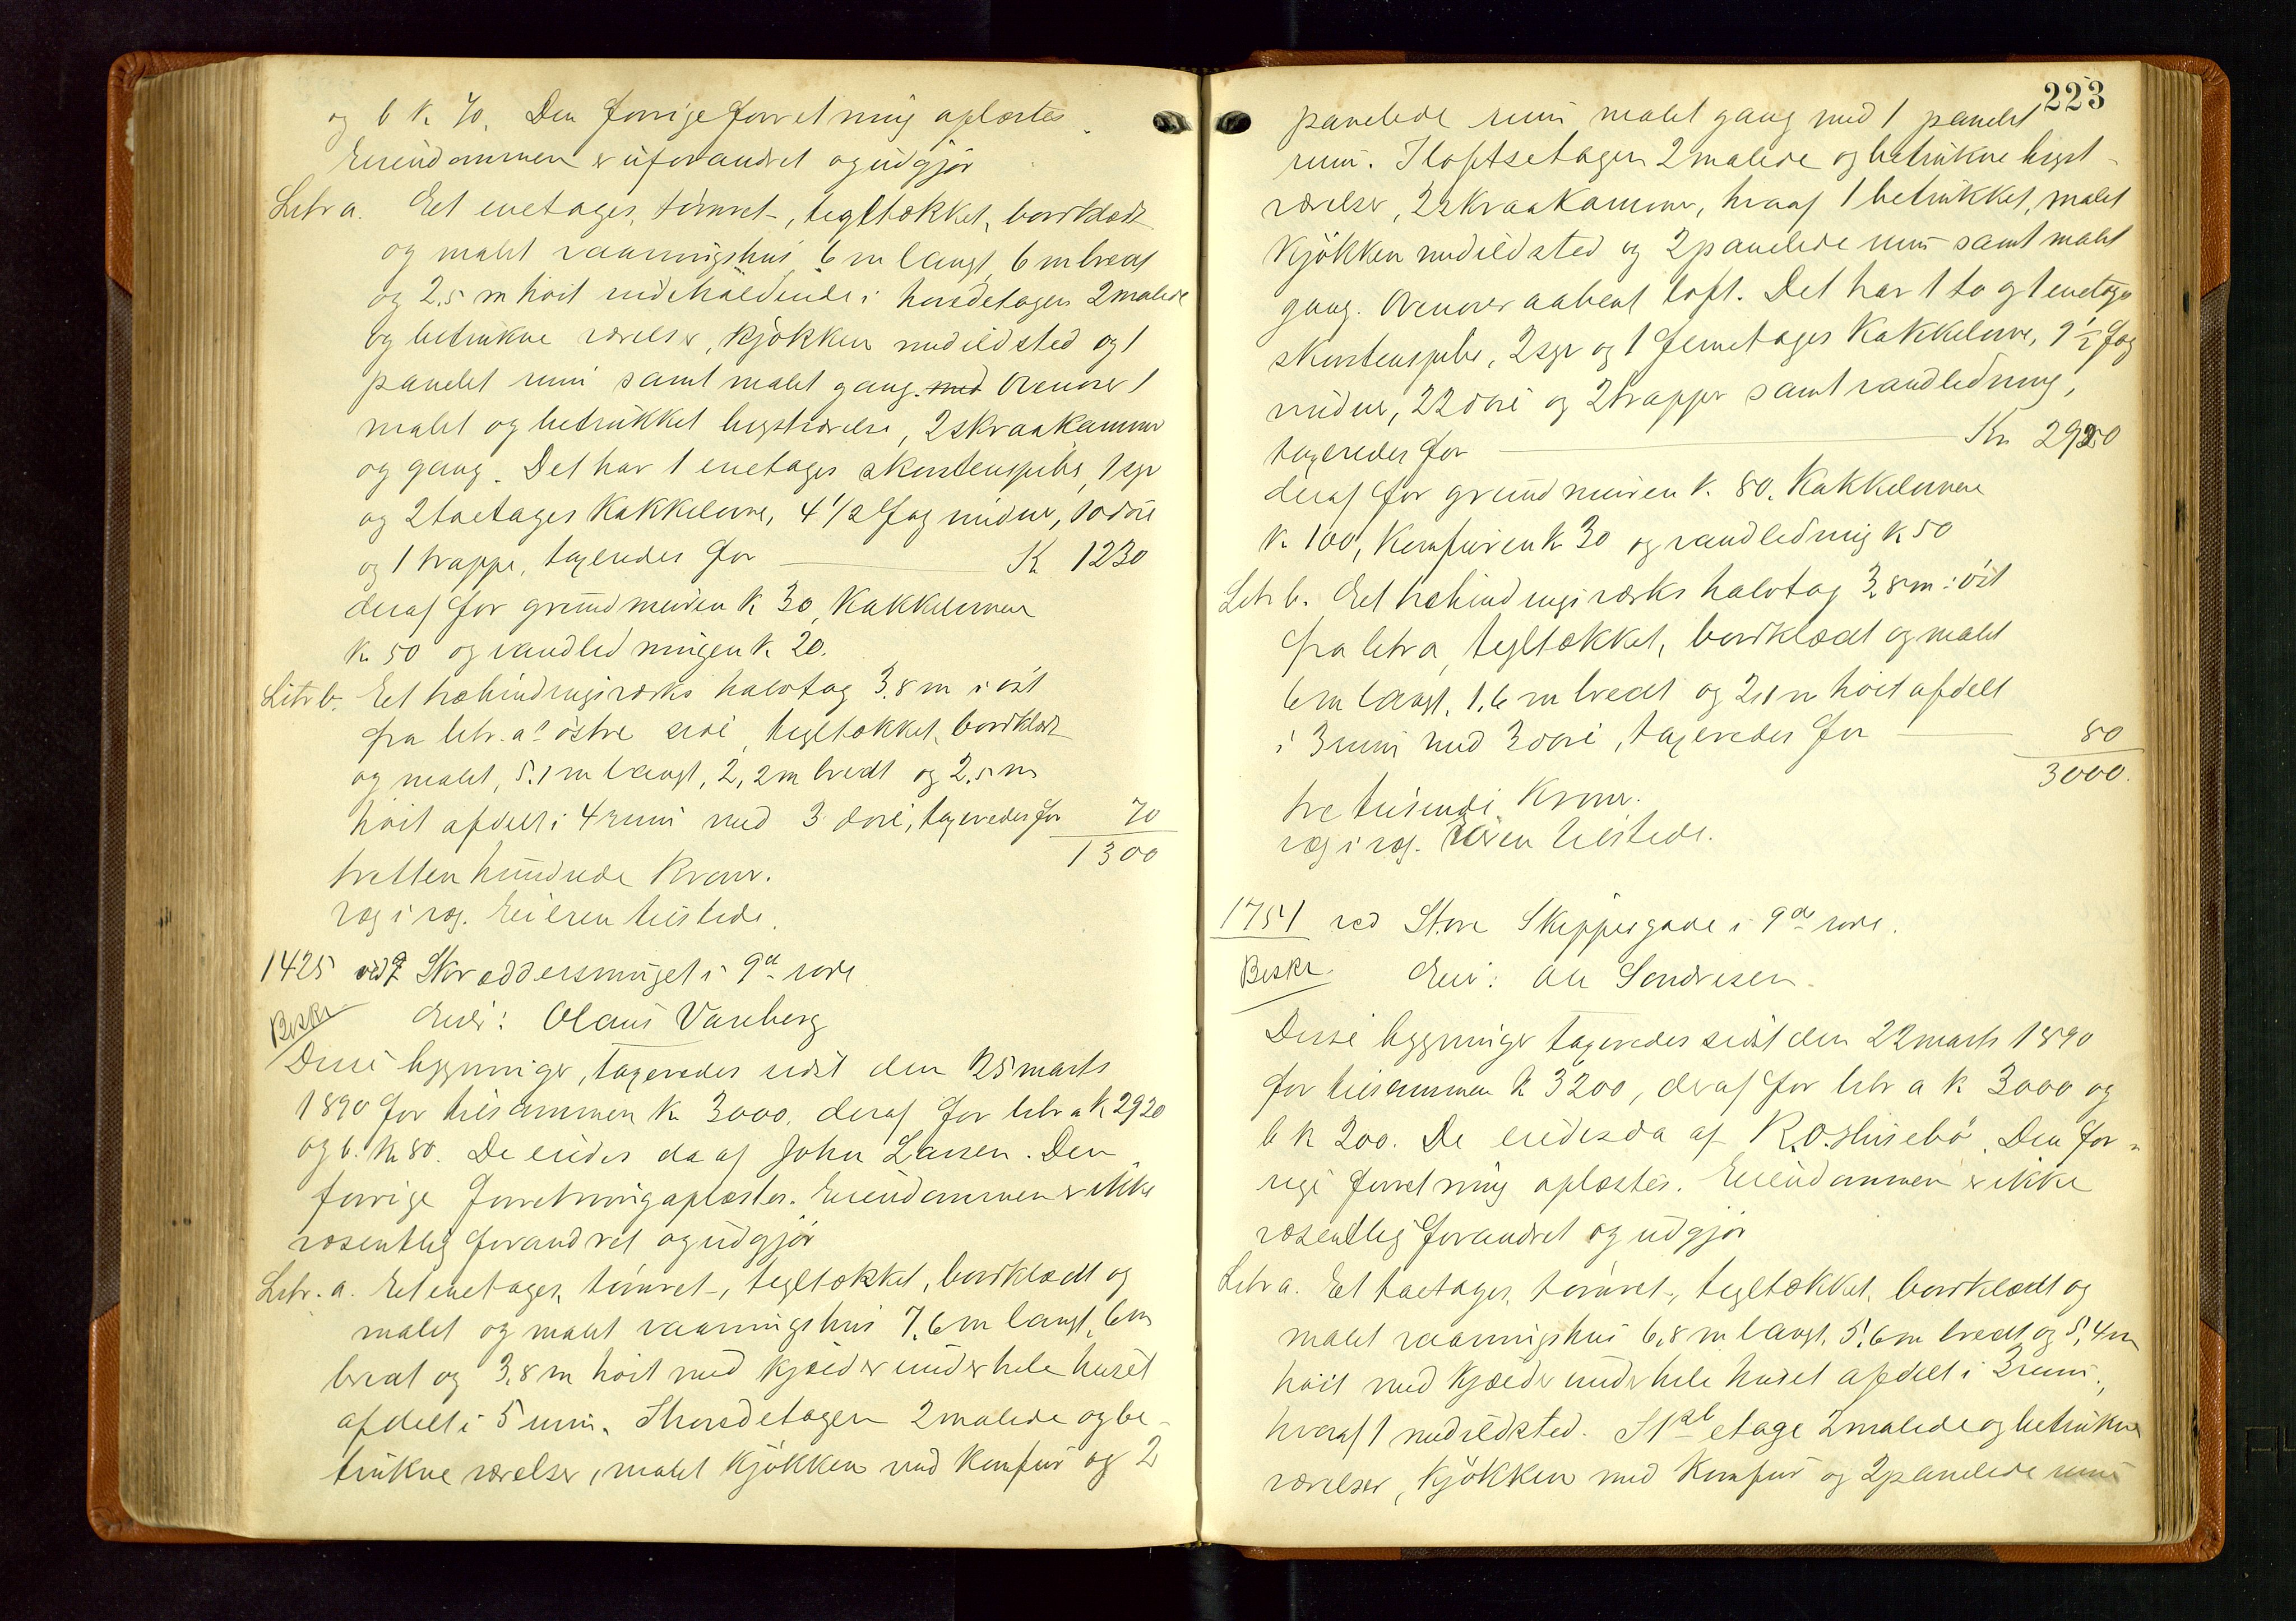 og b K. 70. Den forrige forretning oplæstes.
Eiendommen er uforandret og udgjør
Litr a. Eet enetages, tømret-, tegltækket, bordklædt
og malet vaaningshus 6 m langt, 6 m bredt
og 2.5 m høit indeholdende i hovedetagen 2 malede
og betrukne værelser, kjøkken med ildsted og 1
panelet rum samt malet gang. med Ovenover 1
malet og betrukket kvistværelse, 2 skraakammer
og gang. Det har 1 enetages skorstenspibe, 1 egr
og 2 toetages kakkelovne, 4 1/2 fag vinduer, 10 døre
og 1 trappe, taxeredes for K 1230
deraf for grundmuren K 30, kakkelovnene
K. 50 og vandledningen K. 20.
Litr b. Eet rebindingsværks halvtag 3,8 m i øst
fra litr. a's østre side, tegltækket, bordklædt
og malet, 5.1 m langt, 2,2 m bredt og 2.5 m
høit afdelt i 4 rum med 3 døre, taxeredes for 70
1300
tretten hundrede Kroner.
væg i væg. Eieren tilstede.
1425 ved Skræddersmuget i 9de rode
Beskr Eier: Olaus Vareberg
Disse bygninger, taxeredes sidst den 25 marts
1890 for tilsammen K 3000, deraf for litr a K 2920
og b. K 80. De eiedes da af John Larsen. Den
forrige forretning oplæstes. Eiendommen er ikke
væsentlig forandret og udgjør
Litr. a. Et enetages, tømret-, tegltækket, bordklædt og
malet og malet vaaningshus 7,6 m langt, 6 m
bredt og 3,8 m høit med kjælder under hele huset
afdelt i 5 rum. I hovedetagen 2 malede og be-
trukne værelser, malet kjøkken med komfur og 2
223
panelede rum malet gang med 1 panelet
rum. I loftsetagen 2 malede og betrukne kvist-
værelser, 2 skraakammer, hvoraf 1 betrukket, malet
kjøkken med ildsted og 2 panelede rum samt malet
gang. Ovenover aabent loft. Det har 1 to og 1 enetages
skorstenspibe, 2 egr og 1 femetages kakkelovne, 9 1/2 fag
vinduer, 22 døre og 2 trapper samt vandledning,
taxeredes for Kr 2920
deraf for grundmuren K. 80. kakkelovnene
K. 100, komfuren K 30 og vandledning K 50
Litr b. Eet rebindingsværks halvtag 3,8 m i øst
fra litr a, tegltækket, bordklædt og malet
6 m langt, 1,6 m bredt og 2,1 m høit afdelt
i 3 rum med 3 døre, taxeredes for 80
3000.
tre tusinde Kroner.
væg i væg. Eieren tilstede.
1751 ved Store Skippergade i 9de rode.
Beskr. Eier: Ole Sondresen.
Disse bygninger taxeredes sidst den 22 marts 1890
for tilsammen K 3200, deraf for litr a K 3000 og
b K 200. De eiedes da af R.O. Husebø. Den for-
rige forretning oplæstes. Eiendommen er ikke
væsentlig forandret og udgjør
Litr a. Et toetages, tømret-, tegltækket, bordklædt og
malet vaaningshus 6,8 m langt, 5,6 m bredt og 5,4 m
høit med kjælder under hele huset afdelt i 3 rum,
hvoraf 1 med ildsted. I 1ste etage 2 malede og betrukne
værelser, kjøkken med komfur og 2 panelede rum